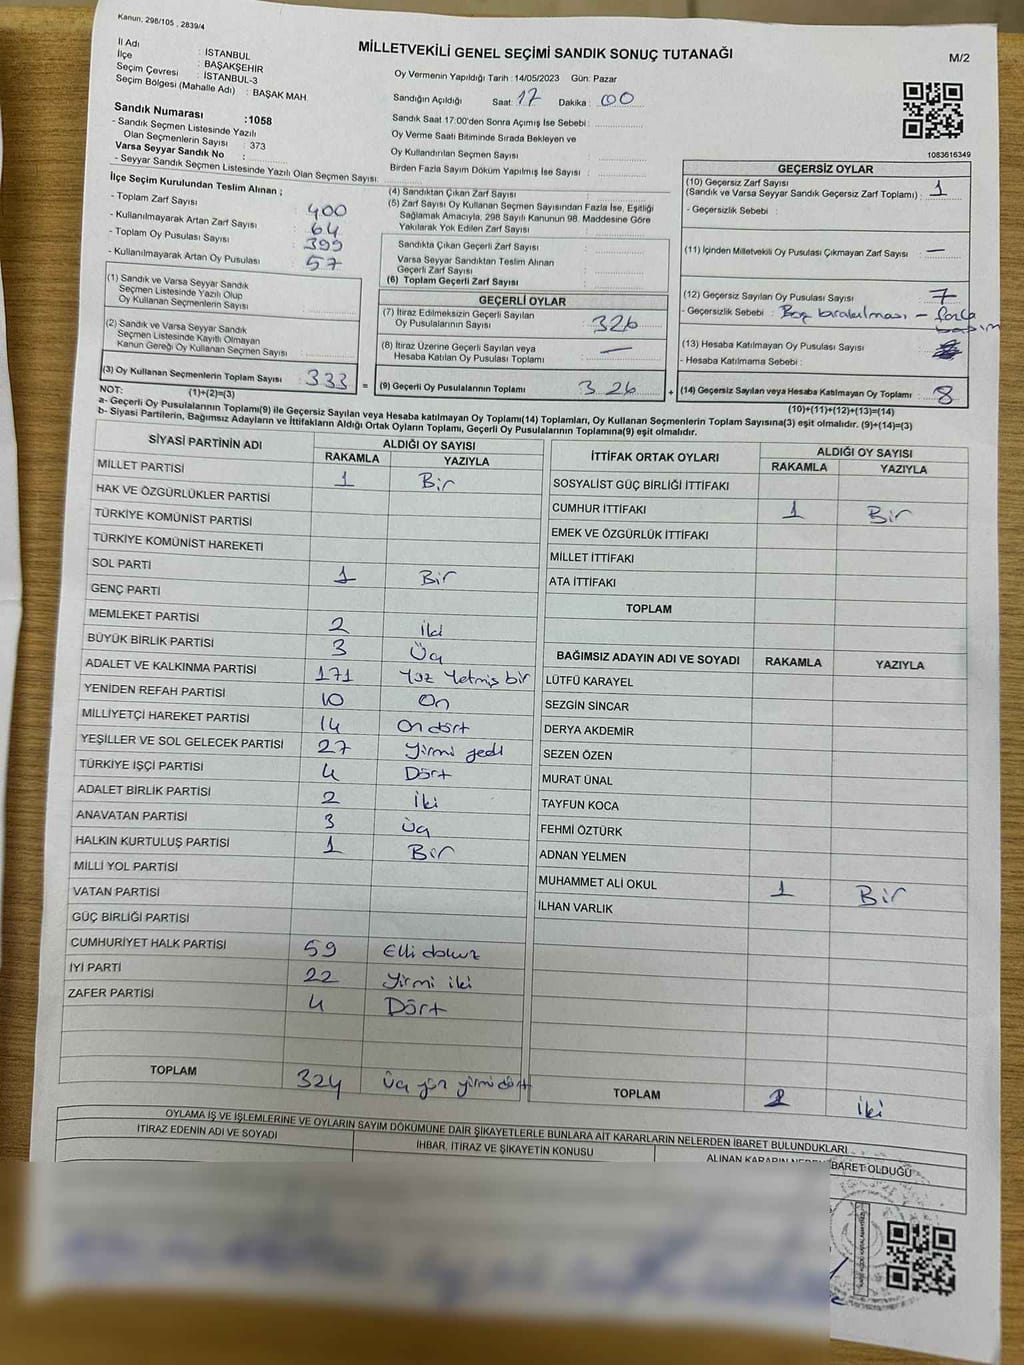 Kanun; 298/105 , 2839/4
MİLLETVEKİLİ GENEL SEÇİMİ SANDIK SONUÇ TUTANAĞI
M/2
İl Adı : İSTANBUL
İlçe : BAŞAKŞEHİR
Seçim Çevresi : İSTANBUL-3
Seçim Bölgesi (Mahalle Adı) : BAŞAK MAH
Sandık Numarası :1058
- Sandık Seçmen Listesinde Yazılı
Olan Seçmenlerin Sayısı : 373
Varsa Seyyar Sandık No :
- Seyyar Sandık Seçmen Listesinde Yazılı Olan Seçmen Sayısı:
Oy Vermenin Yapıldığı Tarih : 14/05/2023 Gün: Pazar
Sandığın Açıldığı Saat: 17 Dakika : 00
Sandık Saat 17:00'den Sonra Açımış İse Sebebi :
Oy Verme Saati Bitiminde Sırada Bekleyen ve
Oy Kullandırılan Seçmen Sayısı :
Birden Fazla Sayım Döküm Yapılmış İse Sayısı :
1083616349
İlçe Seçim Kurulundan Teslim Alınan ;
- Toplam Zarf Sayısı : 400
- Kullanılmayarak Artan Zarf Sayısı : 64
- Toplam Oy Pusulası Sayısı : 399
- Kullanılmayarak Artan Oy Pusulası : 57
(1) Sandık ve Varsa Seyyar Sandık
Seçmen Listesinde Yazılı Olup
Oy Kullanan Seçmenlerin Sayısı :
(2) Sandık ve Varsa Seyyar Sandık
Seçmen Listesinde Kayıtlı Olmayan
Kanun Gereği Oy Kullanan Seçmen Sayısı :
(3) Oy Kullanan Seçmenlerin Toplam Sayısı : 333 =
(1)+(2)=(3)
(4) Sandıktan Çıkan Zarf Sayısı :
(5) Zarf Sayısı Oy Kullanan Seçmen Sayısından Fazla İse, Eşitliği
Sağlamak Amacıyla, 298 Sayılı Kanunun 98. Maddesine Göre
Yakılarak Yok Edilen Zarf Sayısı :
Sandıkta Çıkan Geçerli Zarf Sayısı :
Varsa Seyyar Sandıktan Teslim Alınan
Geçerli Zarf Sayısı :
(6) Toplam Geçerli Zarf Sayısı :
GEÇERLİ OYLAR
(7) İtiraz Edilmeksizin Geçerli Sayılan
Oy Pusulalarının Sayısı : 326
(8) İtiraz Üzerine Geçerli Sayılan veya
Hesaba Katılan Oy Pusulası Toplamı : —
(9) Geçerli Oy Pusulalarının Toplamı : 326 +
GEÇERSİZ OYLAR
(10) Geçersiz Zarf Sayısı
(Sandık ve Varsa Seyyar Sandık Geçersiz Zarf Toplamı) : 1
- Geçersizlik Sebebi :
(11) İçinden Milletvekili Oy Pusulası Çıkmayan Zarf Sayısı : —
(12) Geçersiz Sayılan Oy Pusulası Sayısı : 7
- Geçersizlik Sebebi : Boş bırakılması - fazla
basım
(13) Hesaba Katılmayan Oy Pusulası Sayısı :
- Hesaba Katılmama Sebebi :
(14) Geçersiz Sayılan veya Hesaba Katılmayan Oy Toplamı : 8
(10)+(11)+(12)+(13)=(14)
NOT:
a- Geçerli Oy Pusulalarının Toplamı(9) ile Geçersiz Sayılan veya Hesaba katılmayan Oy Toplamı(14) Toplamları, Oy Kullanan Seçmenlerin Toplam Sayısına(3) eşit olmalıdır. (9)+(14)=(3)
b- Siyasi Partilerin, Bağımsız Adayların ve İttifakların Aldığı Ortak Oyların Toplamı, Geçerli Oy Pusulalarının Toplamına(9) eşit olmalıdır.
SİYASİ PARTİNİN ADI ALDIĞI OY SAYISI
RAKAMLA YAZIYLA
MİLLET PARTİSİ 1 Bir
HAK VE ÖZGÜRLÜKLER PARTİSİ
TÜRKİYE KOMÜNİST PARTİSİ
TÜRKİYE KOMÜNİST HAREKETİ
SOL PARTİ 1 Bir
GENÇ PARTİ
MEMLEKET PARTİSİ 2 İki
BÜYÜK BİRLİK PARTİSİ 3 Üç
ADALET VE KALKINMA PARTİSİ 171 Yüz Yetmiş bir
YENİDEN REFAH PARTİSİ 10 On
MİLLİYETÇİ HAREKET PARTİSİ 14 On dört
YEŞİLLER VE SOL GELECEK PARTİSİ 27 Yirmi yedi
TÜRKİYE İŞÇİ PARTİSİ 4 Dört
ADALET BİRLİK PARTİSİ 2 İki
ANAVATAN PARTİSİ 3 Üç
HALKIN KURTULUŞ PARTİSİ 1 Bir
MİLLİ YOL PARTİSİ
VATAN PARTİSİ
GÜÇ BİRLİĞİ PARTİSİ
CUMHURİYET HALK PARTİSİ 59 Elli dokuz
İYİ PARTİ 22 Yirmi iki
ZAFER PARTİSİ 4 Dört
TOPLAM 324 Üç yüz yirmi dört
İTTİFAK ORTAK OYLARI ALDIĞI OY SAYISI
RAKAMLA YAZIYLA
SOSYALİST GÜÇ BİRLİĞİ İTTİFAKI
CUMHUR İTTİFAKI 1 Bir
EMEK VE ÖZGÜRLÜK İTTİFAKI
MİLLET İTTİFAKI
ATA İTTİFAKI
TOPLAM
BAĞIMSIZ ADAYIN ADI VE SOYADI RAKAMLA YAZIYLA
LÜTFÜ KARAYEL
SEZGİN SİNCAR
DERYA AKDEMİR
SEZEN ÖZEN
MURAT ÜNAL
TAYFUN KOCA
FEHMİ ÖZTÜRK
ADNAN YELMEN
MUHAMMET ALİ OKUL 1 Bir
İLHAN VARLIK
TOPLAM 2 İki
OYLAMA İŞ VE İŞLEMLERİNE VE OYLARIN SAYIM DÖKÜMÜNE DAİR ŞİKAYETLERLE BUNLARA AİT KARARLARIN NELERDEN İBARET BULUNDUKLARI
İTİRAZ EDENİN ADI VE SOYADI İHBAR, İTİRAZ VE ŞİKAYETİN KONUSU ALINAN KARARIN NEDEN İBARET OLDUĞU